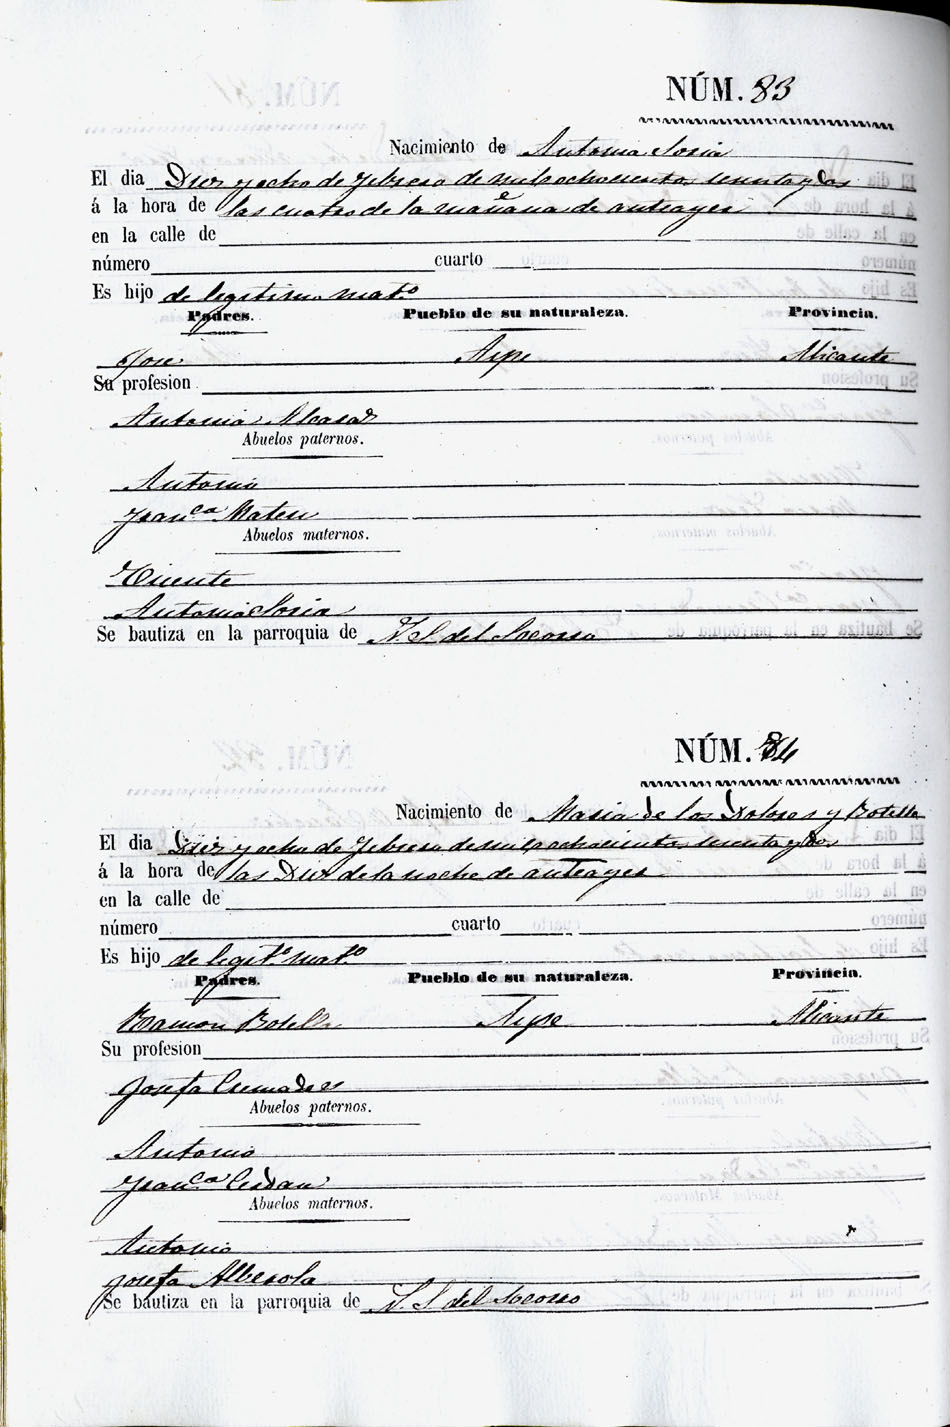 NÚM. 83
Nacimiento de Antonia Soria
El dia Diez y ocho de Febrero de mil ochocientos sesenta y dos
á la hora de las cuatro de la mañana de anteayer
en la calle de
número cuarto
Es hijo de legitimo mat.º
Padres. Pueblo de su naturaleza. Provincia.
Jose Aspe Alicante
Su profesion
Antonia Alcaraz
Abuelos paternos.
Antonio
Fran.ca Mateu
Abuelos maternos.
Vicente
Antonia Soria
Se bautiza en la parroquia de N. S. del Socorro
NÚM. 84
Nacimiento de Maria de los Dolores y Botella
El dia Diez y ocho de Febrero de mil ochocientos sesenta y dos
á la hora de las Diez de la noche de anteayer
en la calle de
número cuarto
Es hijo de legit.º mat.º
Padres. Pueblo de su naturaleza. Provincia.
Ramon Botella Aspe Alicante
Su profesion
Josefa Cremades
Abuelos paternos.
Antonio
Fran.ca Cerdan
Abuelos maternos.
Antonio
Josefa Alberola
Se bautiza en la parroquia de N. S. del Socorro